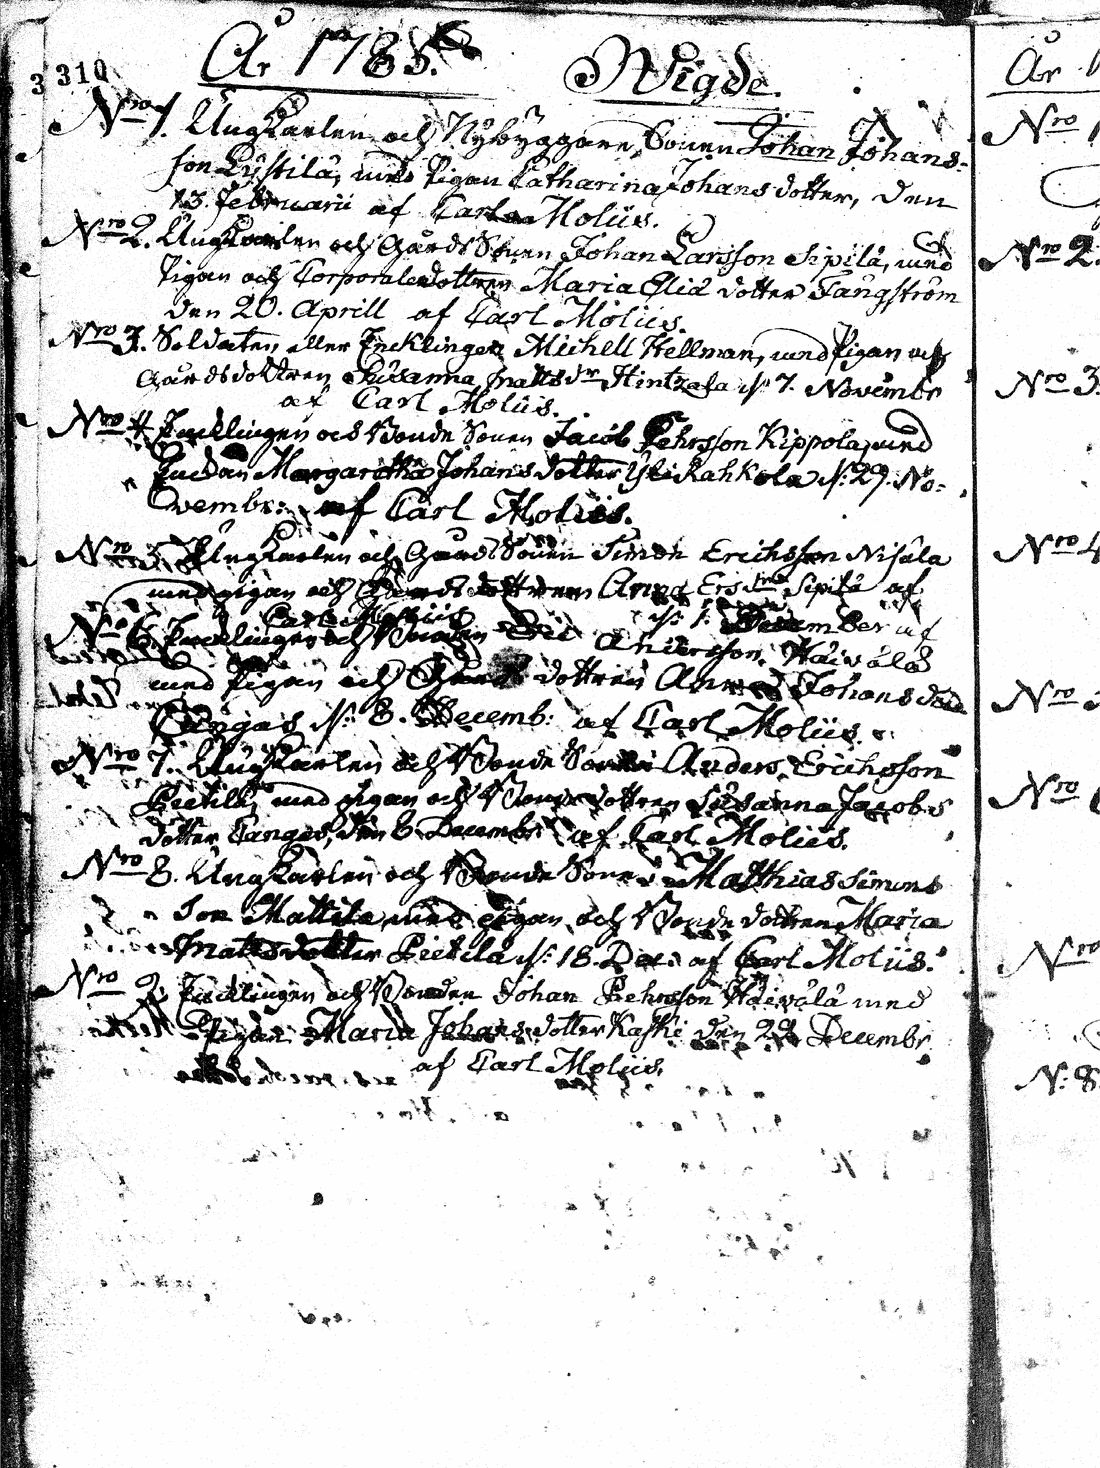 3 310
År 1785. Wigde.
År
Nro 1. Ungkarlen och Nybyggare Sonen Johan Johans-
son Lystilä, med Pigan Catharina Johans dotter, den
13. Februarii af Carl Molüs.
Nro 2. Ungkarlen och Gårds Sonen Johan Larsson Sipilä, med
Pigan och Corporalsdottren Maria Eliæ dotter Fångström
den 20. Aprill af Carl Molüs.
Nro 3. Soldaten eller Encklingen Michell Hellman, med Pigan och
Gårdsdottren Susanna Matts dr Hintzala d: 7. Novembr
af Carl Molüs.
Nro 4. Encklingen och Bonde Sonen Jacob Pehrsson Kippola, med
Enckan Margaretha Johans dotter Yli Rahkola d: 29. No-
vembr: af Carl Molüs.
Nro 5. Ungkarlen och Gårds Sonen Simon Erichsson Nisula
med pigan och Gårds dottren Anna Ers Sipilä af
Carl Molüs d: 1. December af
Nro 6. Encklingen och Bonden Andersson Haivala
med Pigan och dottren Anna Johans
Cangas d: 8. Decemb: af Carl Molüs.
Nro 7. Ungkarlen och Bonde Sonen Anders Erichsson
Pietilä, med pigan och Bonde dottren Susanna Jacobs
dotter Cangas, den 8. Decembr af Carl Molüs.
Nro 8. Ungkarlen och Bonde Sonen Matthias Simons
Son Mattila med pigan och Bonde dottren Maria
Matts dotter Pietila d: 18. Dec. af Carl Molüs.
Nro 9. Encklingen och Bonden Johan Pehrsson Haivala med
Pigan Maria Johans dotter Kaski den Decembr
af Carl Molüs.
Nro
Nro 2.
Nro 3.
Nro 4
Nro
Nro
Nro
N: 8